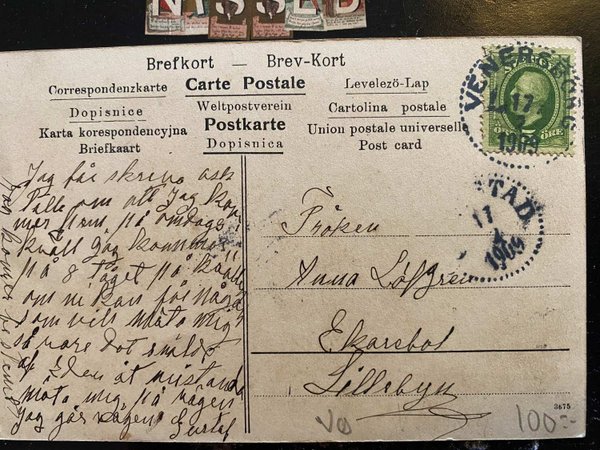 NISSED
Brefkort — Brev-Kort
Correspondenzkarte Carte Postale Levelező-Lap
Dopisnice Weltpostverein Cartolina postale
Karta korespondencyjna Postkarte Union postale universelle
Briefkaart Dopisnica Post card
VENERSBORG
17
1909
STAD
17
1909
ÖRE
Jag får skriva
Tala om att Jag kom
mer på onsdags
kväll Jag kommer
på 8 tåget på kvälln
om ni kan få någon
som vill möta mig
så vore det snällt
af Eder åt
möta mig på vägen
Jag går vägen Gustaf
Fröken
Anna Löfgren
Ekarebol
Lillebyn
3675
VÖ
100:-